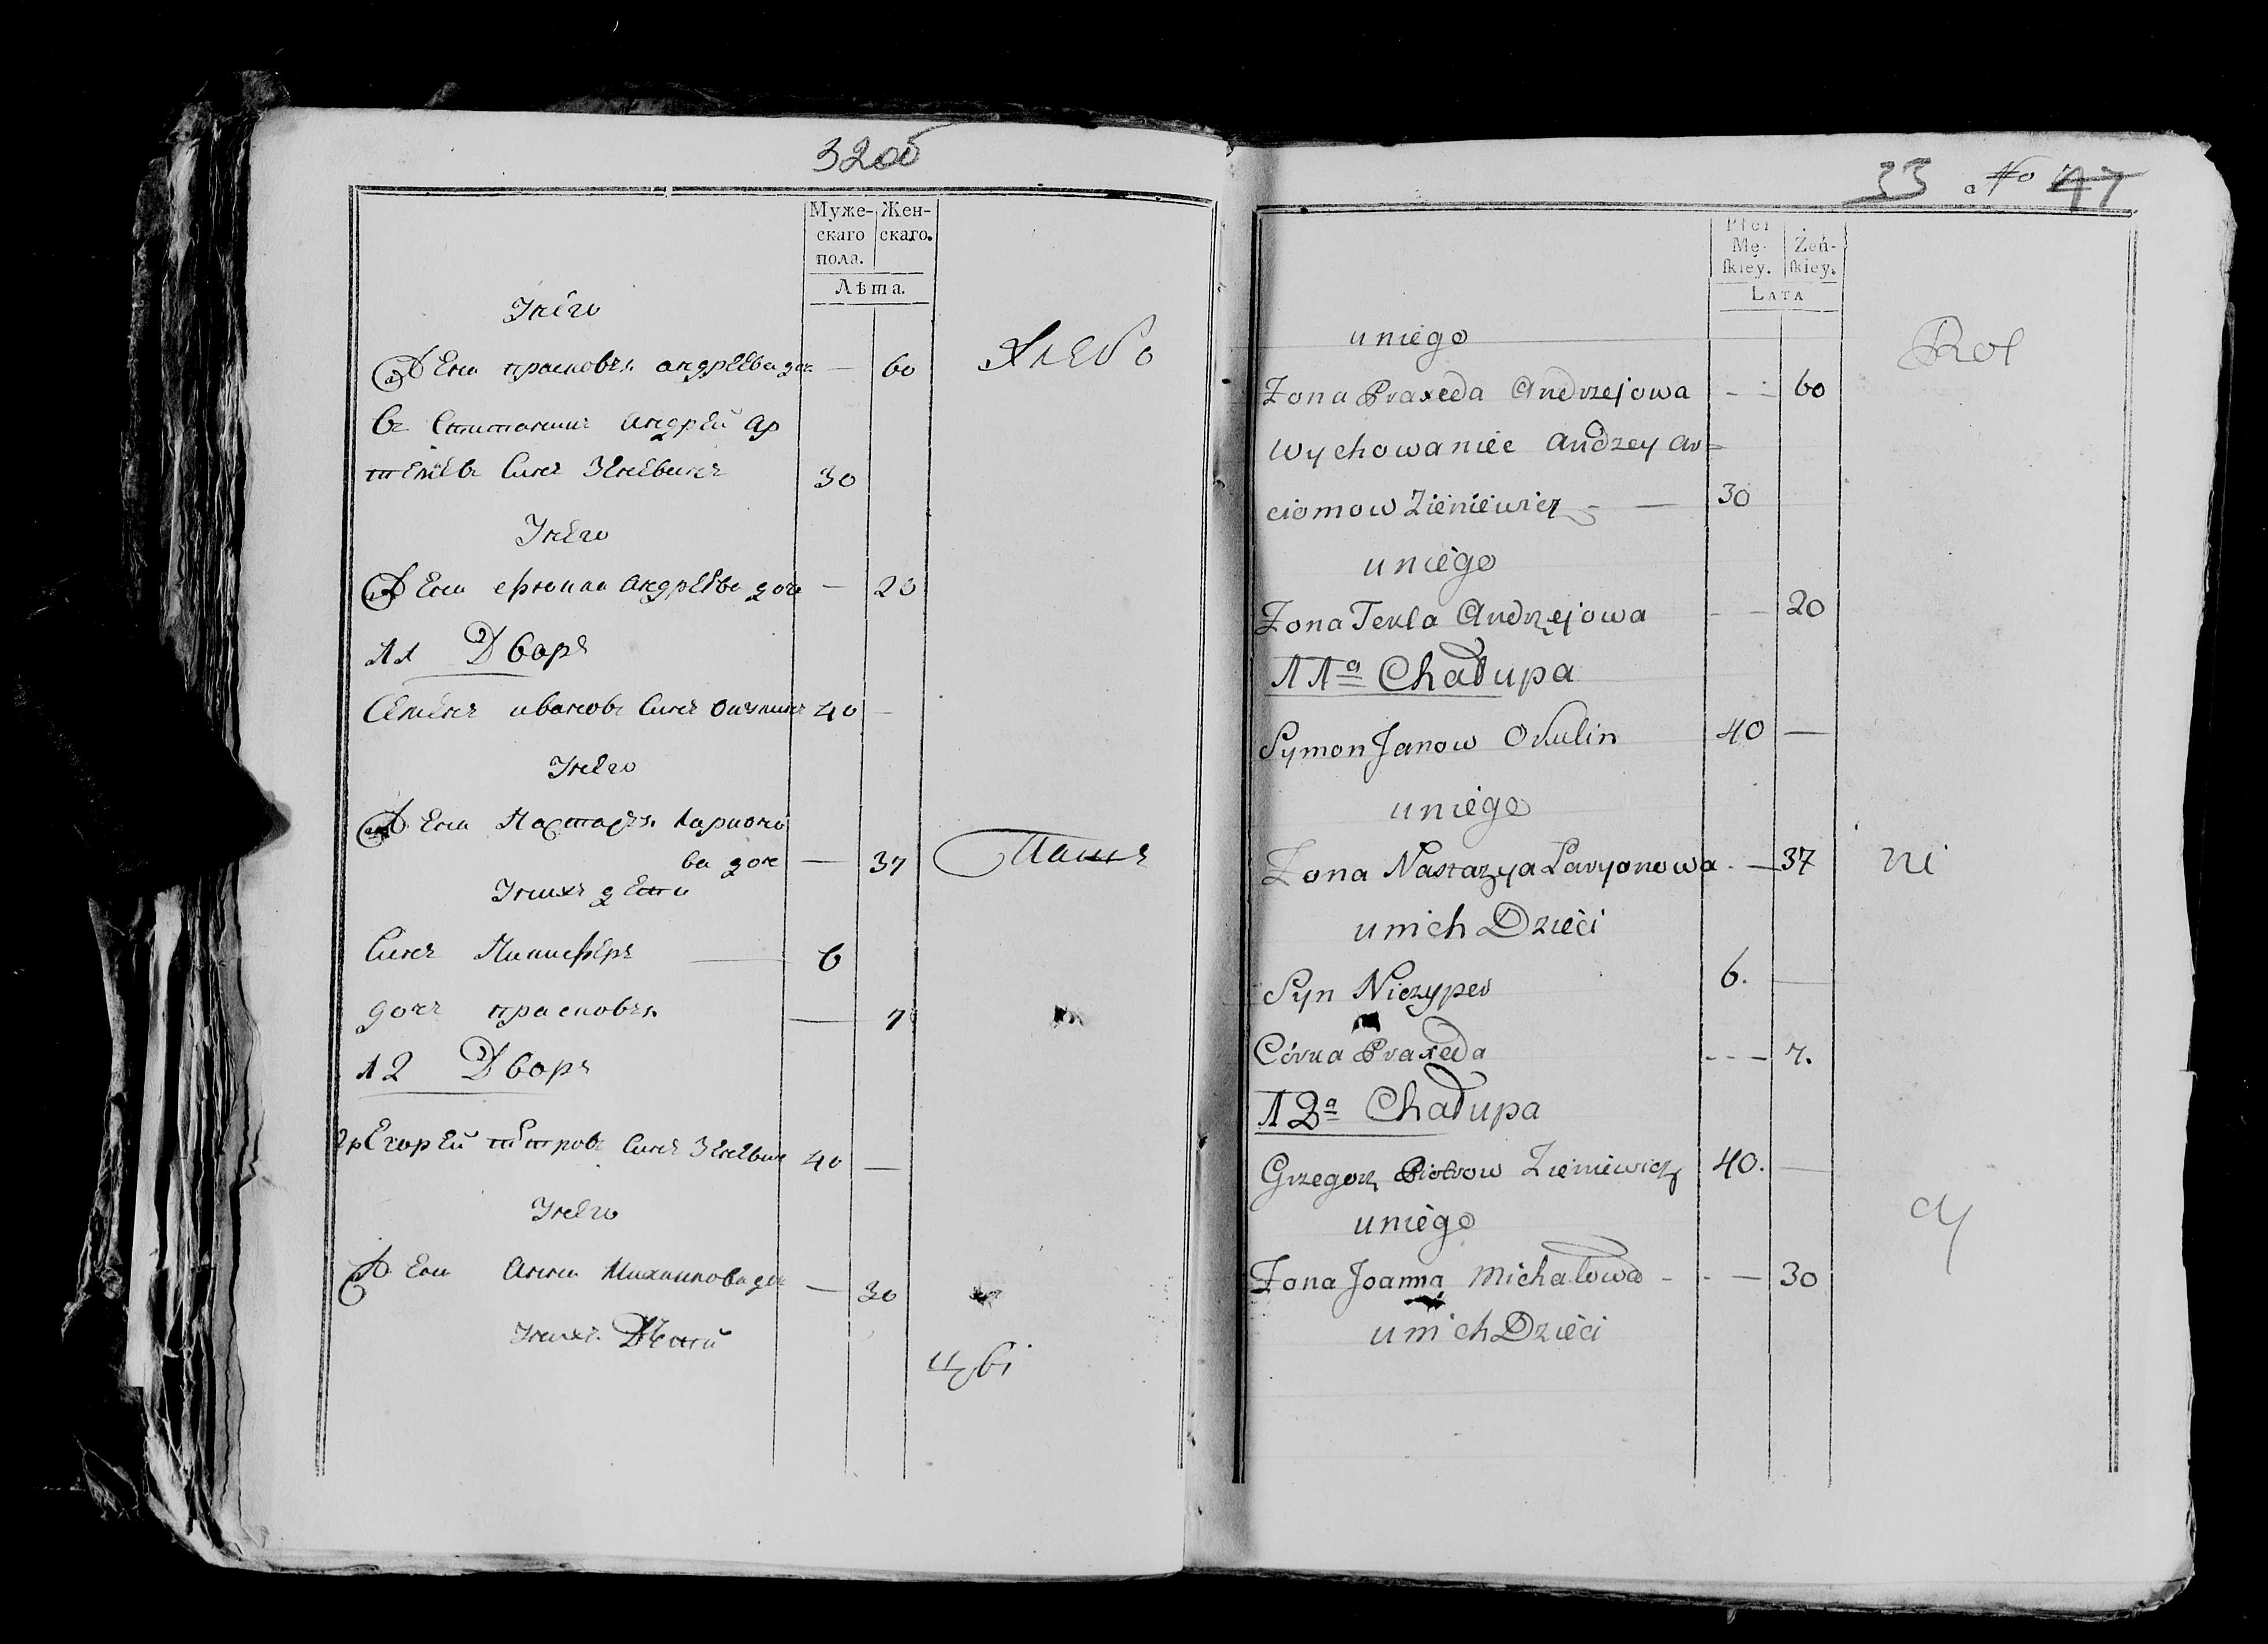 32об
Муже- Жен-
скаго скаго.
пола.
Лѣта.
Унего
Жена прасковѣя андреева доч — 60 Хлебо
Вспитаниц Андрей Ар
темѣев Синъ Зеневичъ 30
Унего
Жена Андреева доч — 20
11 Дворъ
Семенъ иванов Синъ 40 —
Унего
Жена Настасѣя Ларионо
ва доч — 37 Паше
Унихъ дети
Синъ Никиферъ — 6
дочъ прасковѣя — 7
12 Дворъ
Егорей петров Синъ Зеневич 40 —
Унего
Жена Анна Михаилова доч — 30
Унихъ Дѣтй
33 No 47
Płci
Mę- Żeń-
ſkiey. ſkiey.
LATA
uniego
Zona Praxeda Andrzejowa - - 60 Rol
Wychowaniec Andzey Ar-
ciomow Zieniewicz - — 30
uniego
Zona Tekla Andrzejowa - — 20
11a Chałupa
Symon Janow Okulin 40 —
uniego
Zona Nastazya Laryonowa - — 37 ni
unich Dzieci
Syn Niczyper 6. —
Córka Praxeda - - - 7.
12a Chałupa
Grzegorz Piotrow Zieniewicz 40. —
uniego
Zona Joanna Michałowa - - — 30 cy
unich Dzieci